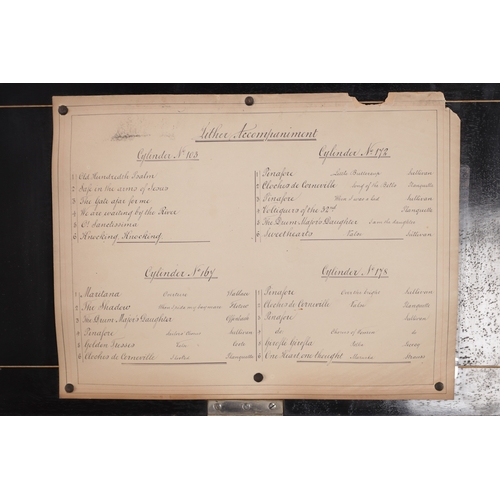 Zither Accompaniment
Cylinder No 103
1 Old Hundredth Psalm
2 Safe in the arms of Jesus
3 The Gate afar for me
4 We are waiting by the River
5 O! Sanctissima
6 Knocking, Knocking
Cylinder No 172
1 Pinafore Little Buttercup Sullivan
2 Cloches de Corneville Song of the Bells Planquette
3 Pinafore When I was a lad Sullivan
4 Voltigeurs of the 32nd Planquette
5 The Drum Major's Daughter
6 Sweethearts Valse Sullivan
Cylinder No 167
1 Maritana Overture Wallace
2 The Shadow Flotow
3 The Drum Major's Daughter Offenbach
4 Pinafore Sullivan
5 Golden Tresses Valse Coote
6 Cloches de Corneville Planquette
Cylinder No 178
1 Pinafore Over the bright Sullivan
2 Cloches de Corneville Valse Planquette
3 Pinafore Sullivan
4 do do
5 Girofle Girofla Valse Lecocq
6 One Heart one thought Mazurka Strauss